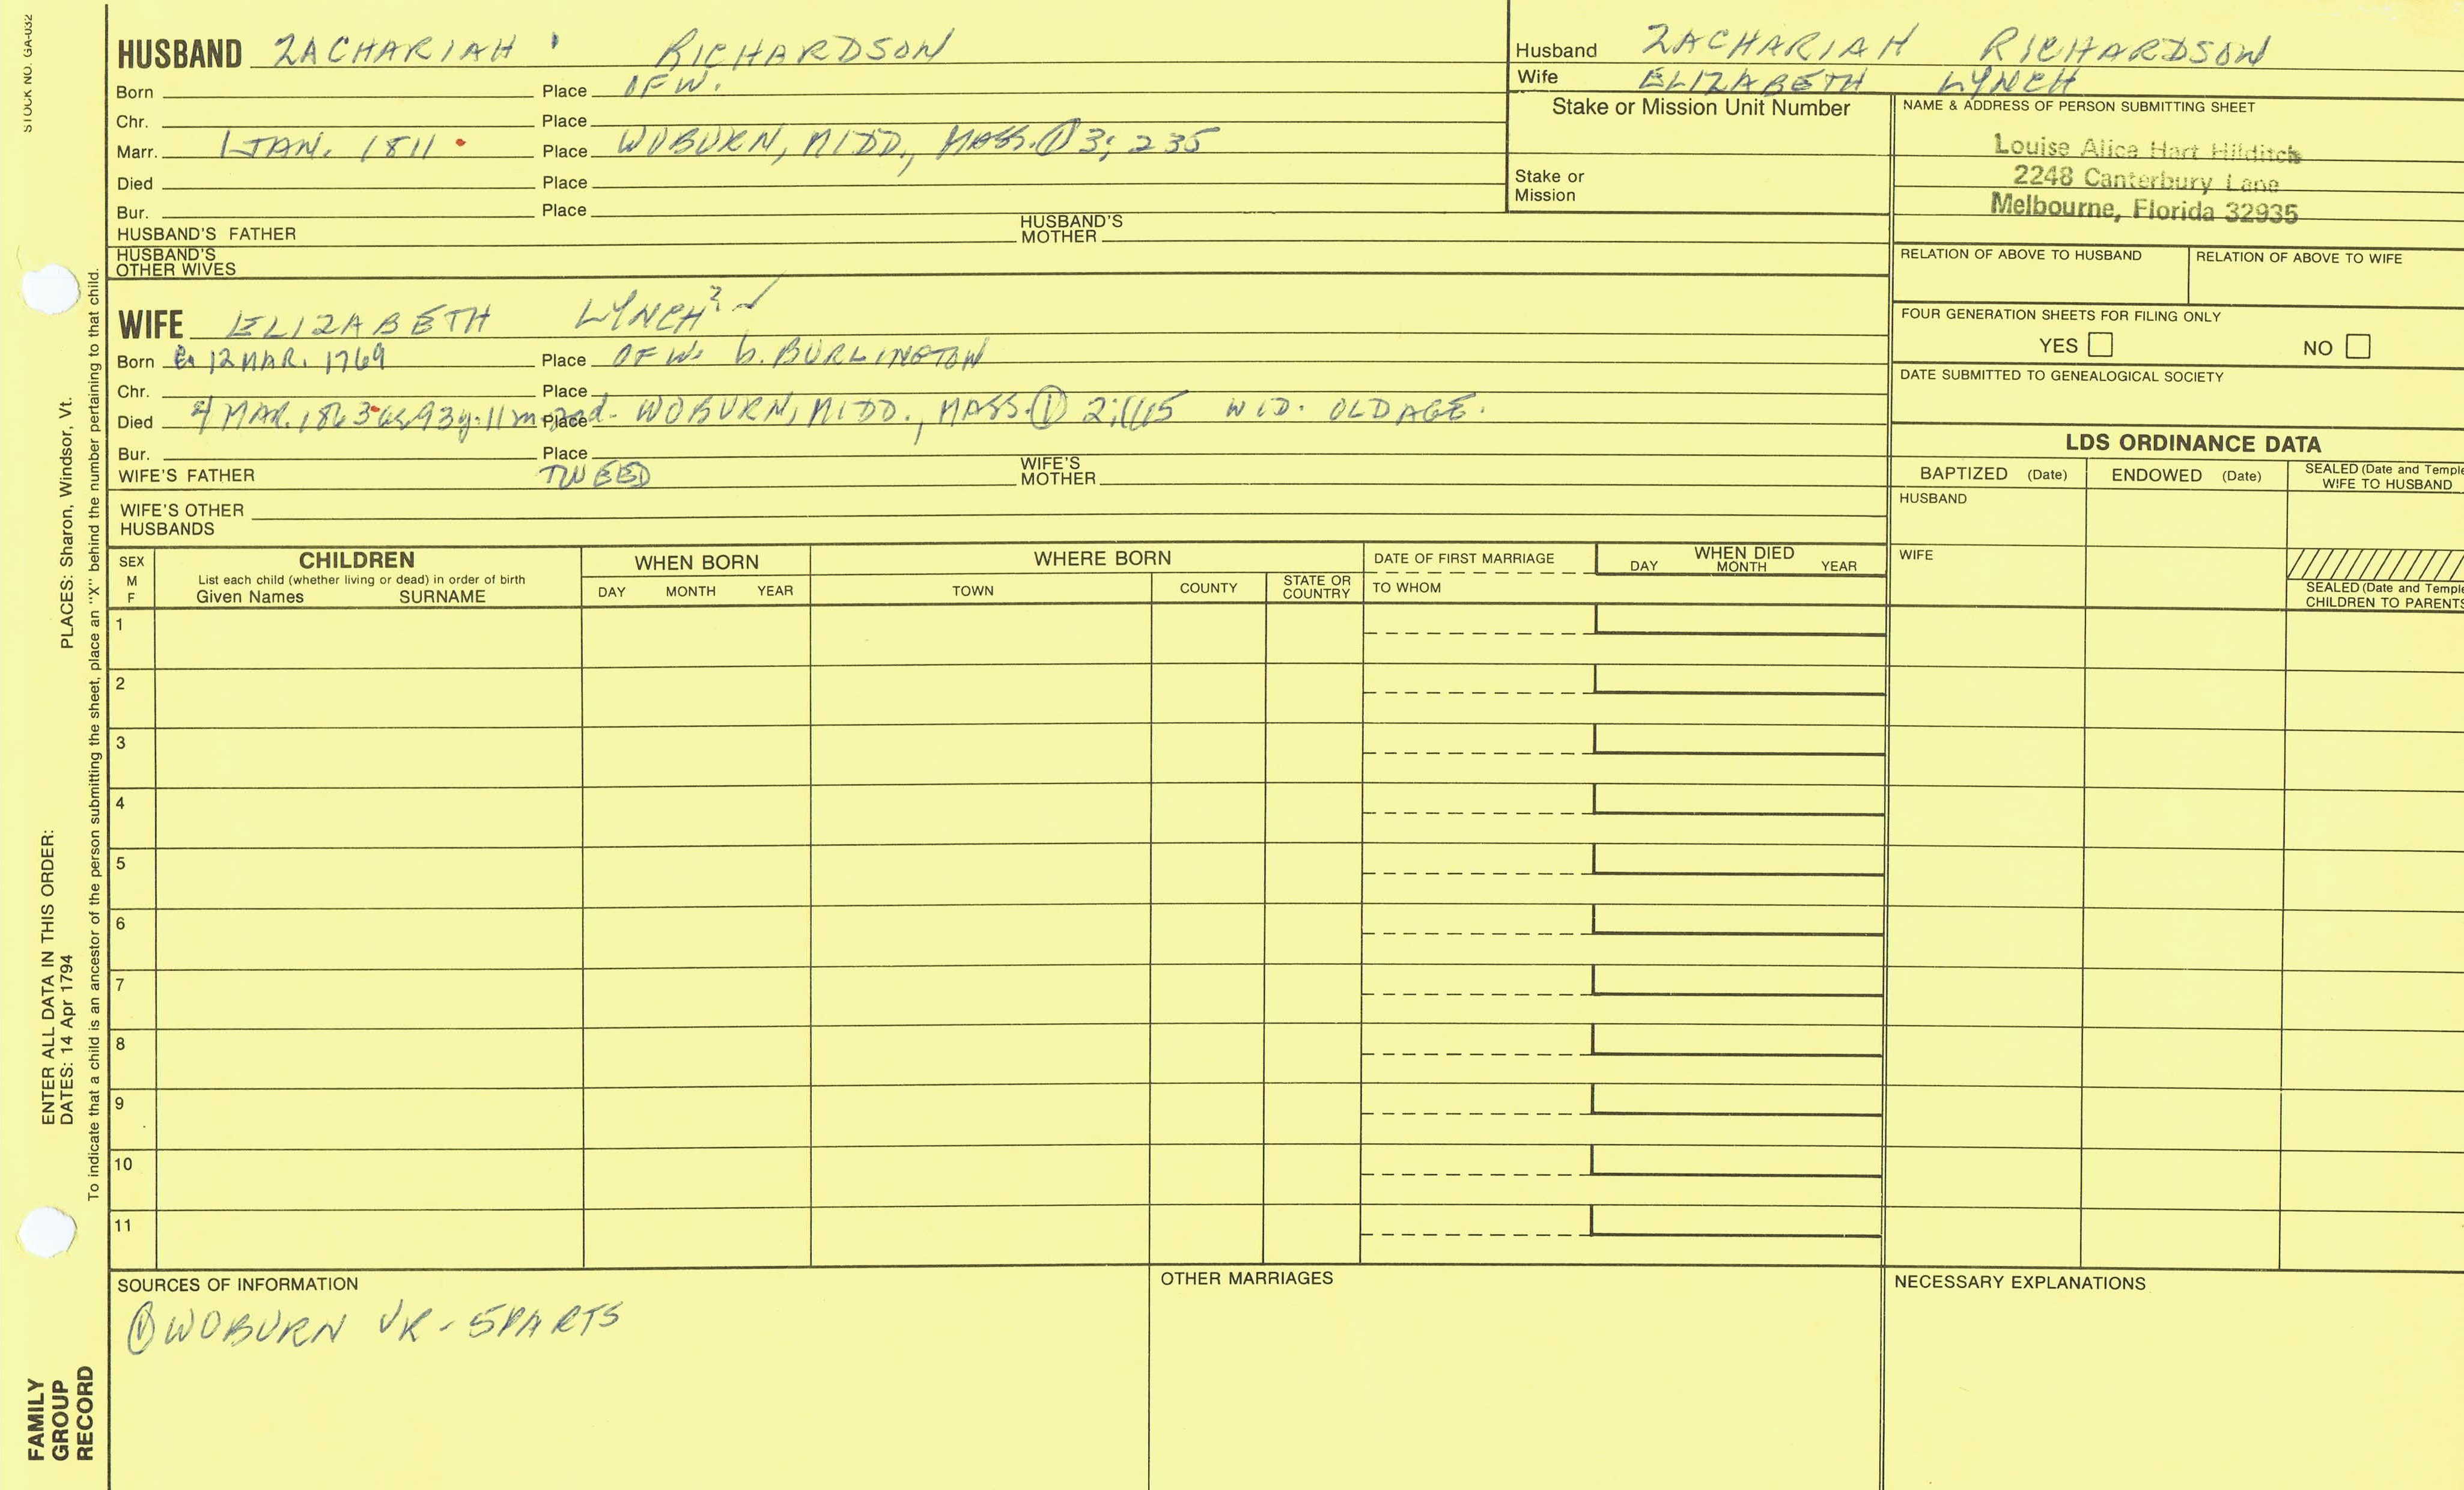 STOCK NO. GA-032
HUSBAND ZACHARIAH RICHARDSON
Born Place OF W.
Chr. Place
Marr. 1 JAN. 1811 Place WOBURN, MIDD., MASS. ① 3; 235
Died Place
Bur. Place
HUSBAND'S FATHER HUSBAND'S MOTHER
HUSBAND'S OTHER WIVES
WIFE ELIZABETH LYNCH ?
Born 12 MAR. 1769 Place OF W. b. BURLINGTON
Chr. Place
Died 4 MAR. 1863 93y. 11m Place WOBURN, MIDD., MASS. ① WID. OLD AGE.
Bur. Place
WIFE'S FATHER TWEED WIFE'S MOTHER
WIFE'S OTHER HUSBANDS
Husband ZACHARIAH RICHARDSON
Wife ELIZABETH LYNCH
Stake or Mission Unit Number
Stake or Mission
NAME & ADDRESS OF PERSON SUBMITTING SHEET
Louise Alice Hart Hilditch
2248 Canterbury Lane
Melbourne, Florida 32935
RELATION OF ABOVE TO HUSBAND RELATION OF ABOVE TO WIFE
FOUR GENERATION SHEETS FOR FILING ONLY
YES NO
DATE SUBMITTED TO GENEALOGICAL SOCIETY
LDS ORDINANCE DATA
BAPTIZED (Date) ENDOWED (Date) SEALED (Date and Temple
WIFE TO HUSBAND
HUSBAND
WIFE
SEALED (Date and Temple
CHILDREN TO PARENTS
SEX
M
F
CHILDREN
List each child (whether living or dead) in order of birth
Given Names SURNAME
WHEN BORN
DAY MONTH YEAR
WHERE BORN
TOWN COUNTY STATE OR COUNTRY
DATE OF FIRST MARRIAGE
TO WHOM
WHEN DIED
DAY MONTH YEAR
1
2
3
4
5
6
7
8
9
10
11
SOURCES OF INFORMATION
① WOBURN VR - 5 PARTS
OTHER MARRIAGES
NECESSARY EXPLANATIONS
ENTER ALL DATA IN THIS ORDER:
DATES: 14 Apr 1794 PLACES: Sharon, Windsor, Vt.
To indicate that a child is an ancestor of the person submitting the sheet, place an "X" behind the number pertaining to that child.
FAMILY
GROUP
RECORD